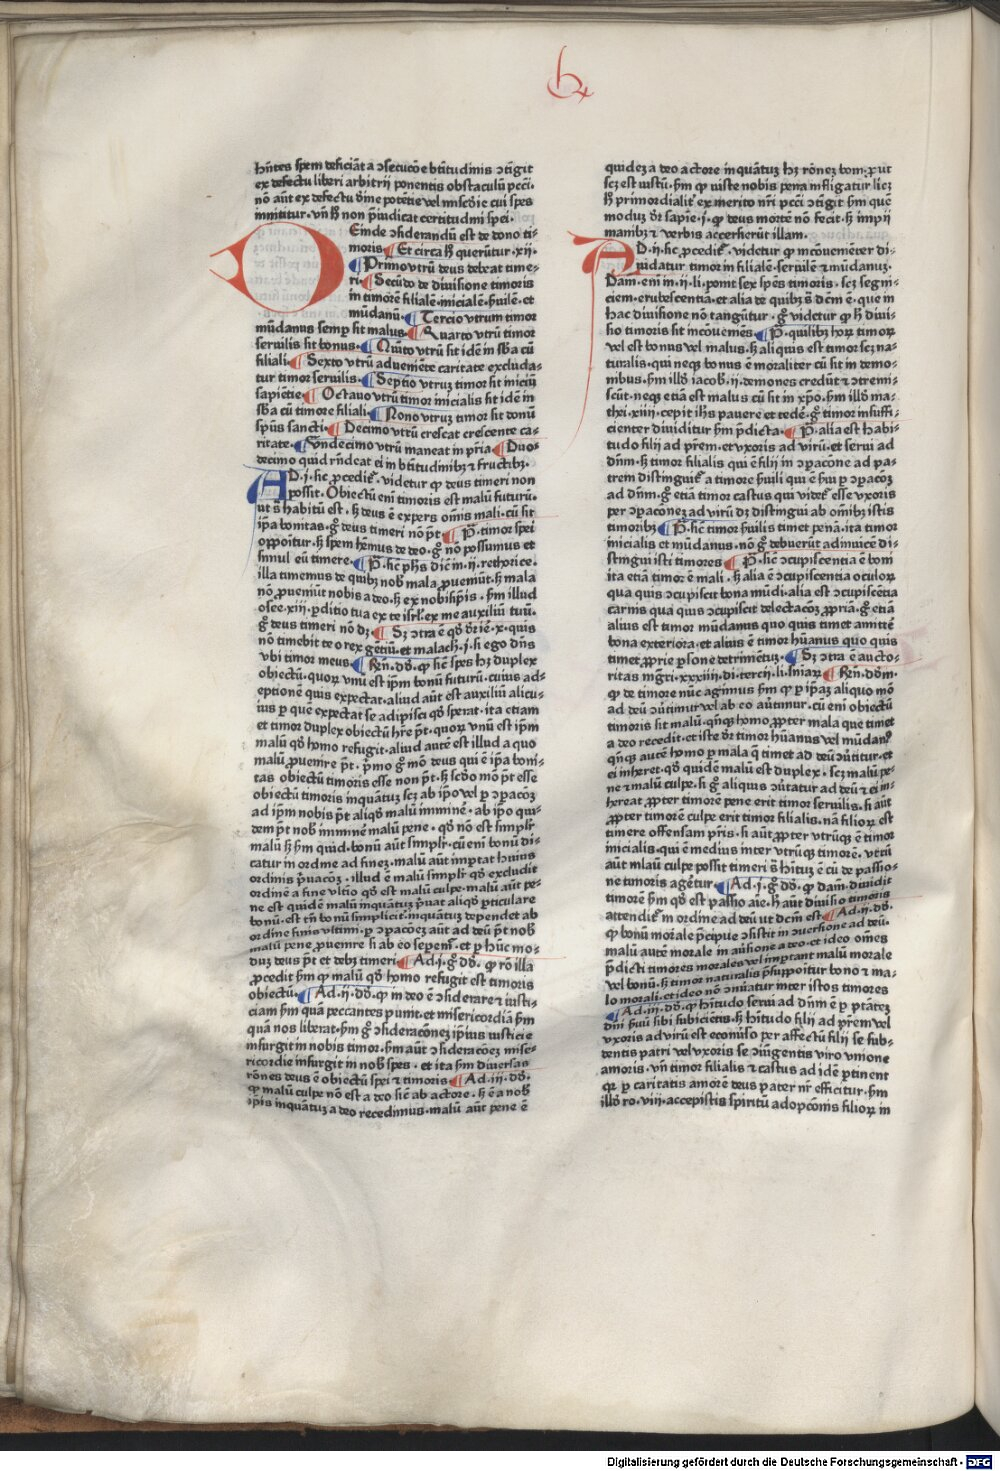 hn̄tes spem deficiāt a ↄsecucōe btītudinis ↄtīgit
ex defectu liberi arbitrij ponentis obstaculū pecī·
nō aūt ex defectu diuīe potētie vel mīscdie cui spes
innititur· vn̄ hͦ non p̄iudicat certitudini spei·
DEinde ↄsiderandū est de dono ti-
moris· Et circa hͦ querūtur·xij·
Primo vtrū deus debeat time-
ri· Secūdo de diuisione timoris
in timorē filialē·inicialē·s̄uilē·et
mūdanū· Tercio vtrum timor
mūdanus semp sit malus· Quarto vtrū timor
seruilis sit bonus· Quīto vtrū sit idē in sb̄a cū
filiali· Sexto vtrū adueniēte caritate excluda-
tur timor seruilis· Septīo vtruꝫ timor sit iniciū
sapiētie· Octauo vtrū timor inicialis sit idē in
sb̄a cū timore filiali· Nono vtruꝫ timor sit donū
spūs sancti· Decimo vtrū crescat crescente ca-
ritate· Vndecimo vtrū maneat in pr̄ia· Duo-
decimo quid rn̄deat ei in btītudinibꝫ ⁊ fructibꝫ·
AD·j·sic ꝓceditͬ· videtur ꝙ deus timeri non
possit· Obiectū eni timoris est malū futurū·
ut s͛ habitū est· sꝫ deus ē expers om̄is mali·cū sit
ip̄a bonitas·gͦ deus timeri nō pt̄· P̄·timor spei
opponitur· sꝫ spem hēmus de deo·gͦ nō possumus et
simul eū timere· P̄·sic ph̄s dic̄ in·ij·rethorice·
illa timemus de quibꝫ nob̄ mala ꝓueniūt·sꝫ mala
nō ꝓueniūt nobis a deo·sꝫ ex nobisip̄is·ẜm illud
osee·xiij·ꝑditio tua ex te isrl̄·ex me auxiliū tuū·
gͦ deus timeri nō dꝫ· Sꝫ ↄtra ē qͦ dr̄ iē·x·quis
nō timebit te o rex gētiū·et malach·j·si ego dn̄s
vbi timor meus· Rn̄·dd̄·ꝙ sic̄ spes hꝫ duplex
obiectū·quoꝝ vnū est ip̄m bonū futurū·cuius ad-
eptionē quis expectat·aliud aūt est auxiliū alicu-
ius ꝑ quē expectat se adipisci qͦ sperat·ita etiam
et timor duplex obiectū hr̄e pt̄·quoꝝ vnū est ip̄m
malū qͦ homo refugit·aliud autē est illud a quo
malū ꝓuenire pt̄· p̄mo gͦ mō deus qui ē ip̄a boni-
tas obiectū timoris esse non pt̄·sꝫ scd̄o mō pt̄ esse
obiectū timoris inquātuꝫ scꝫ ab ip̄o vel ꝑ ↄꝑacōꝫ
ad ip̄m nobis pt̄ aliqͦ malū imminē·ab ip̄o qui-
dem pt̄ nob̄ imminē malū pene· qͦ nō est simplr̄
malū sꝫ ẜm quid·bonū aūt simplr̄·cū eni bonū di-
catur in ordine ad fineꝫ·malū aūt importat huius
ordinis p̄uacōꝫ· illud ē malū simplr̄ qͦ excludit
ordinē a fine vltīo qͦ est malū culpe·malū aūt pe-
ne est quidē malū inquātuꝫ p̄uat aliqͦ ꝑticulare
bonū·est tn̄ bonū simplicit͛·inquātuꝫ dependet ab
ordine finis vltimi·ꝑ ↄꝑacōeꝫ aūt ad deū pt̄ nob̄
malū pene ꝓuenire si ab eo sepen͛·et ꝑ hūc mo-
duꝫ deus pt̄ et debꝫ timeri· Ad·j·gͦ dd̄· ꝙ rō illa
ꝓcedit ẜm ꝙ malū qͦ homo refugit est timoris
obiectū· Ad·ij·dd̄·ꝙ in deo ē ↄsiderare ⁊ iusti-
ciam ẜm quā peccantes punit·et misericordiā ẜm
quā nos liberat·ẜm gͦ ↄsideracōneꝫ ipsius iusticie
insurgit in nobis timor·ẜm aūt ↄsideracōeꝫ mise-
ricordie insurgit in nob̄ spes· et ita ẜm diuersas
rōnes deus ē obiectū spei ⁊ timoris· Ad·iij·dd̄·
ꝙ malū culpe nō est a deo sic̄ ab actore·sꝫ ē a nob̄
ip̄is inquātuꝫ a deo recedimus·malū aūt pene ē
quideꝫ a deo actore inquātuꝫ hꝫ rōneꝫ boni·ꝓut
scꝫ est iustū·ẜm ꝙ iuste nobis pena infligatur licꝫ
hͦ primordialit͛ ex merito nr̄i pcc̄i ↄtīgit·ẜm quē
moduꝫ dr̄ sapie·j·ꝙ deus mortē nō fecit·sꝫ impij
manibꝫ ⁊ verbis accersierūt illam·
AD·ij·sic ꝓceditͬ· videtur ꝙ incōuenienter di-
uidatur timor in filialē·seruilē ⁊ mūdanuꝫ·
Dam·eni in·ij·li·ponit sex spēs timoris· scꝫ segni-
ciem·erubescentiā·et alia de quibꝫ s͛ dc̄m ē·que in
hac diuisione nō tangūtur· gͦ videtur ꝙ hͦ diui-
sio timoris sit incōueniēs· P̄·quilibꝫ hoꝝ timoꝝ
vel est bonus vel malus·sꝫ aliquis est timor scꝫ na-
turalis·qui neqꝫ bonus ē moraliter cū sit in demo-
nibus·ẜm illd̄ iacob·ij·demones credūt ⁊ ↄtremi-
scūt·neqꝫ etiā est malus cū sit in xp̄o·ẜm illd̄ ma-
thei·xiiij·cepit ih̄s pauere et tedē·gͦ timor insuffi-
cienter diuiditur ẜm p̄dicta· P̄·alia est habi-
tudo filij ad pr̄em·et vxoris ad virū·et serui ad
dn̄m·sꝫ timor filialis qui ē filij in ↄꝑacōne ad pa-
trem distinguit͛ a timore s̄uili qui ē s̄ui ꝑ ↄꝑacōꝫ
ad dn̄m·gͦ etiā timor castus qui videt͛ esse vxoris
per ↄꝑaconeꝫ ad virū dꝫ distingui ab om̄ibꝫ istis
timoribꝫ· P̄·sic timor s̄uilis timet penā·ita timor
inicialis et mūdanus·nō gͦ debuerūt adinuicē di-
stingui isti timores· P̄·sic̄ ↄcupiscentia ē boni
ita etiā timor ē mali·sꝫ alia ē ↄcupiscentia oculoꝝ
qua quis ↄcupiscit bona mūdi·alia est ↄcupiscētia
carnis qua quis ↄcupiscit delectacōꝫ ꝓpriā·gͦ etiā
alius est timor mūdanus quo quis timet amittē
bona exteriora·et alius ē timor hūanus quo quis
timet ꝓprie ꝑsone detrimētuꝫ· Sꝫ ↄtra ē aucto-
ritas mgr̄i·xxxiiij·di·tercij·li·sniaꝝ· Rn̄·dd̄m·
ꝙ de timore nūc agimus ẜm ꝙ ꝑ ip̄aꝫ aliquo mō
ad deū ↄūtimur vel ab eo aūtimur·cū eni obiectū
timoris sit malū·qn̄qꝫ homo ꝓpter mala que timet
a deo recedit·et iste dr̄ timor hūanus vel mūdanꝰ
qn̄qꝫ autē homo ꝑ mala q̄ timet ad deū ↄūtitur·et
ei inheret·qͦ quidē malū est duplex·scꝫ malū pe-
ne ⁊ malū culpe·si gͦ aliquis ↄūtatur ad deū ⁊ ei in-
hereat ꝓpter timorē pene erit timor seruilis·si aūt
ꝓpter timorē culpe erit timor filialis·nā filioꝝ est
timere offensam pr̄is·si aūt ꝓpter vtrūqꝫ ē timor
inicialis·qui ē medius inter vtrūqꝫ timorē·vtrū
aūt malū culpe possit timeri s͛ hītuꝫ ē cū de passio-
ne timoris agēr̄tur· Ad·j·gͦ dd̄·ꝙ dam·diuidit
timorē ẜm qͦ est passio aīe·sꝫ aūt diuisio timoris
attendit͛ in ordine ad deū ut dc̄m est· Ad·ij·dd̄·
ꝙ bonū morale p̄cipue ↄsistit in ↄuersione ad deū·
malū autē morale in aūsione a deo·et ideo om̄es
p̄dicti timores morales vel important malū morale
vel bonū·sꝫ timor naturalis p̄supponitur bono ⁊ ma-
lo morali·et ideo nō ↄnūatur inter istos timores
Ad·iij·dd̄·ꝙ hītudo serui ad dn̄m ē ꝑ ptātēꝫ
dn̄i s̄uū sibi subicientis·sꝫ hītudo filij ad pr̄em vel
vxoris ad virū est econūso per affectū filij se sub-
dentis patri vel vxoris se ↄiūgentis viro vnione
amoris·vn̄ timor filialis ⁊ castus ad idē ꝑtinent
qꝛ ꝑ caritatis amorē deus pater nr̄ efficitur·ẜm
illd̄ ro·viij·accepistis spiritū adopcōnis filioꝝ in
Digitalisierung gefördert durch die Deutsche Forschungsgemeinschaft - DFG